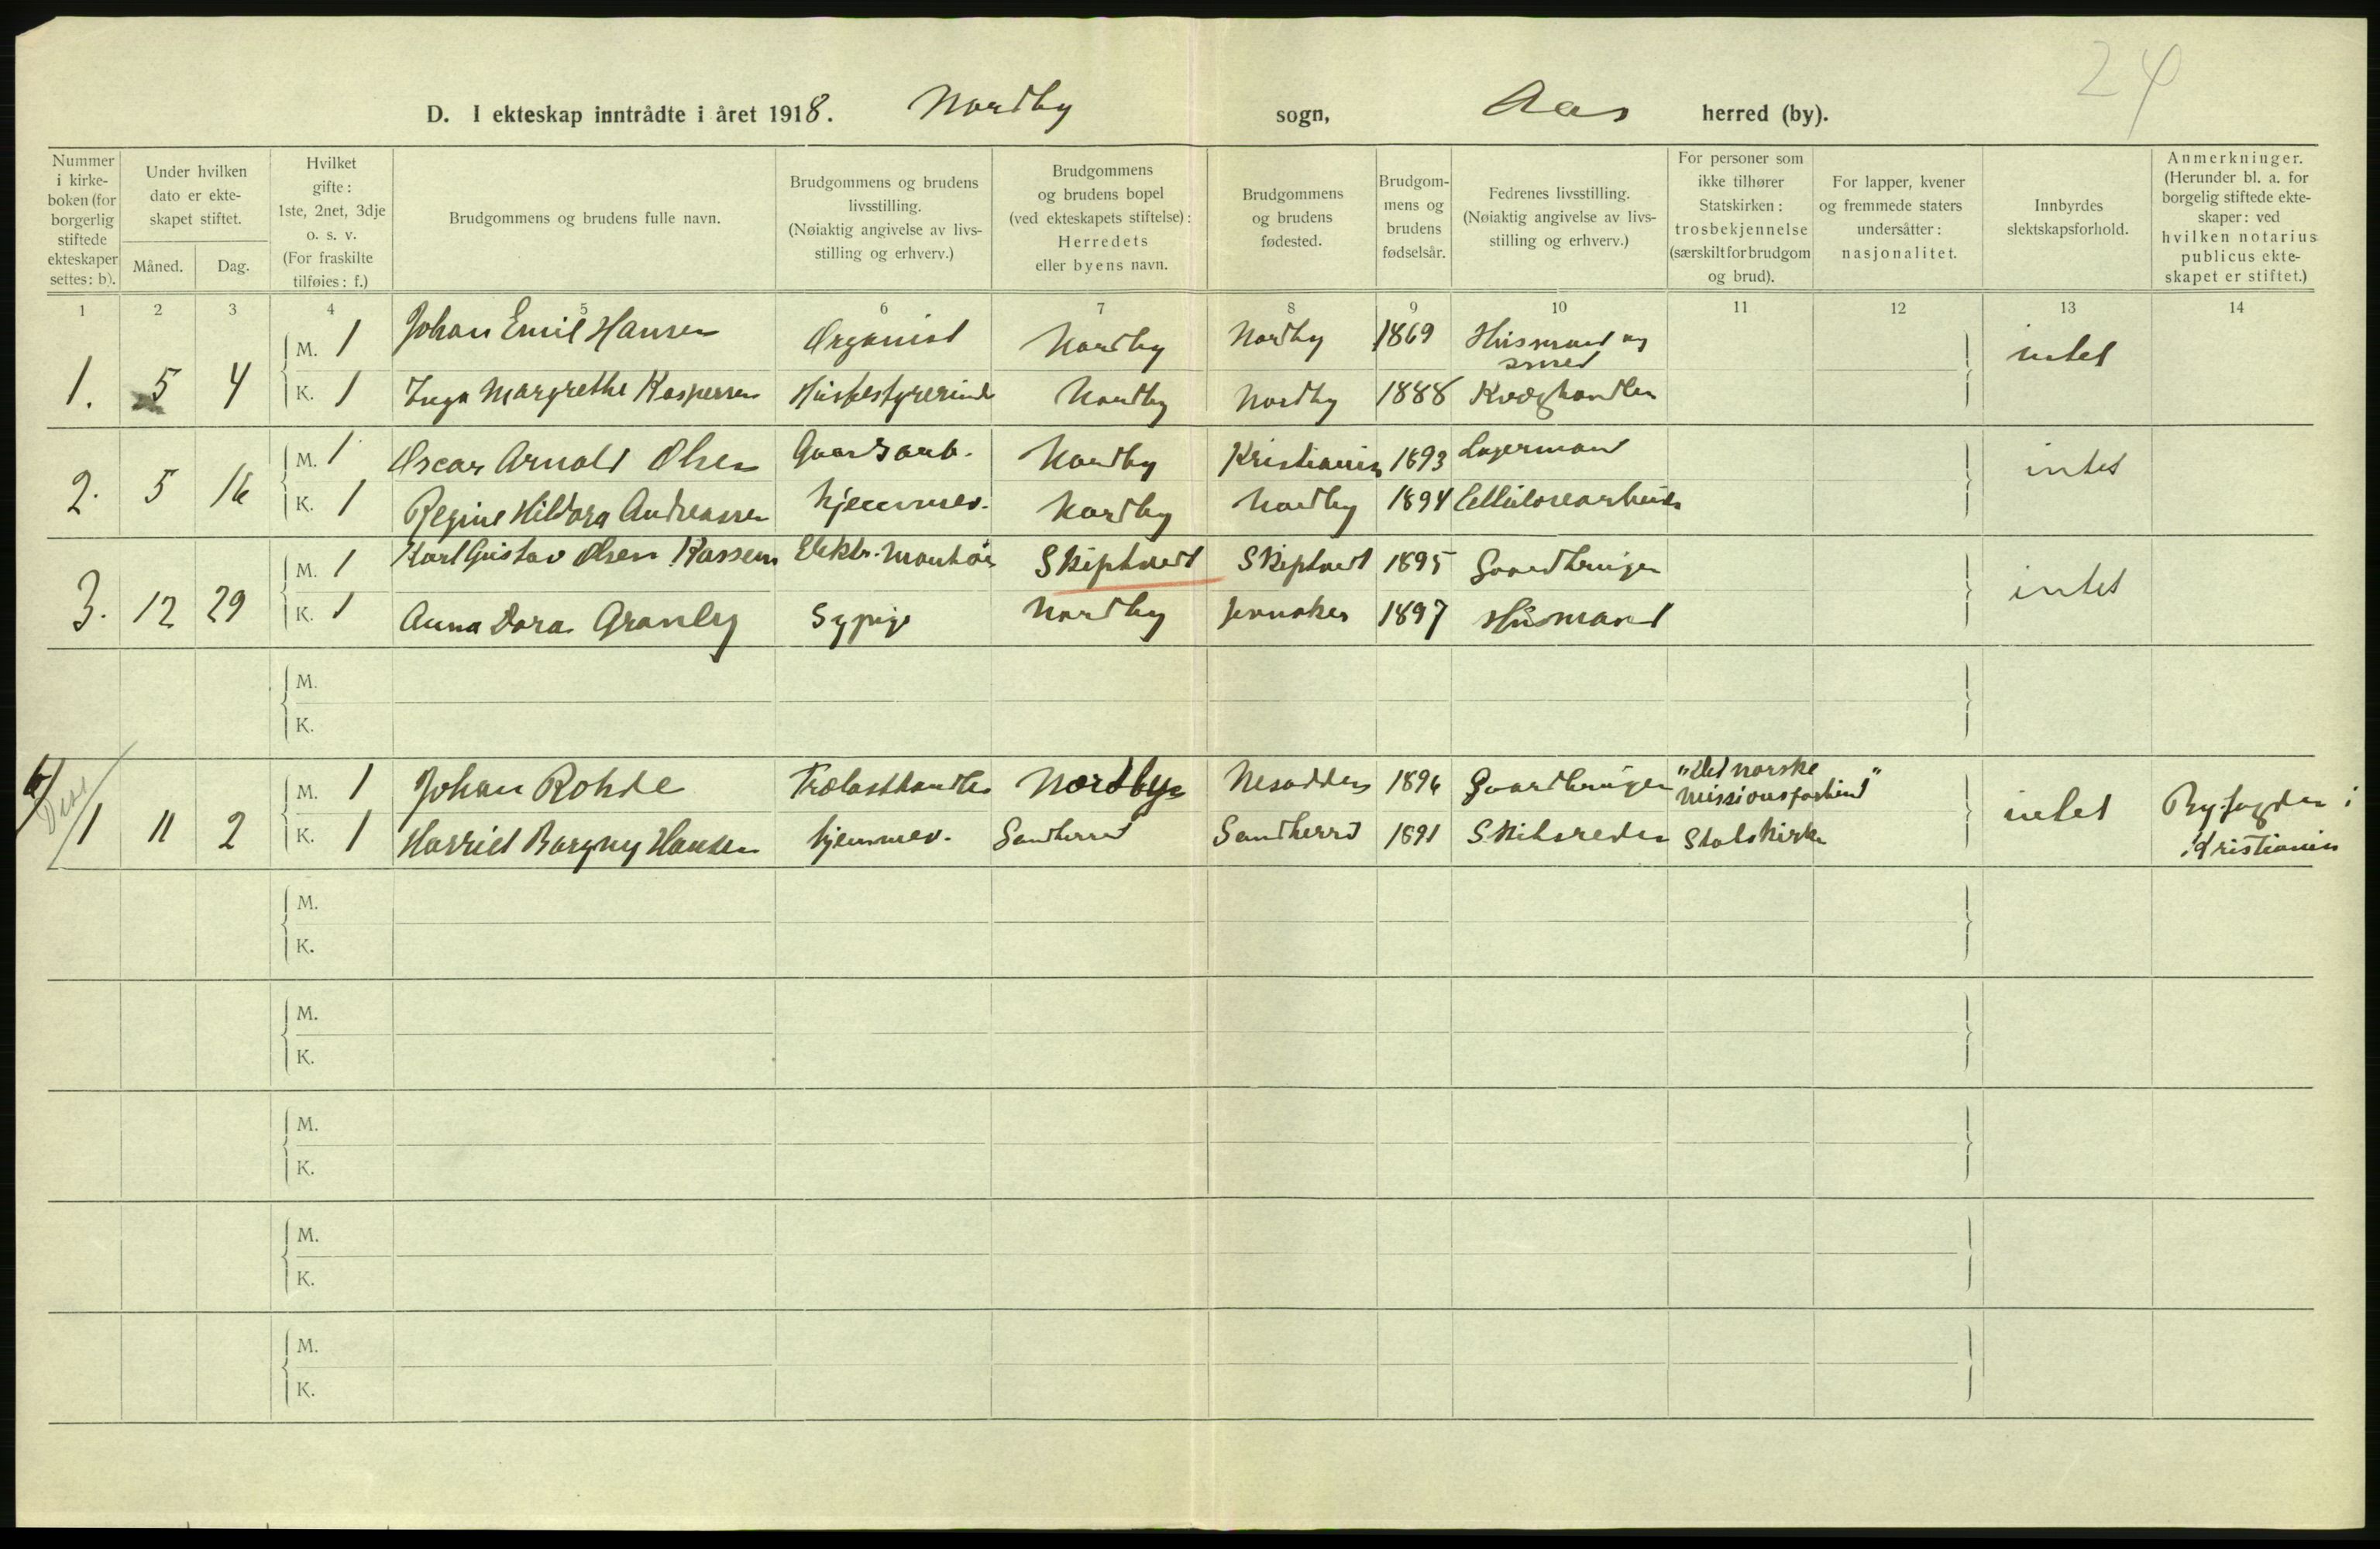 24
D. I ekteskap inntrådte i året 1918. Nordby sogn, Aas herred (by).
Nummer i kirke-boken (for borgerlig stiftede ekteskaper settes: b).
Under hvilken dato er ekte-skapet stiftet.
Måned. Dag.
Hvilket gifte: 1ste, 2net, 3dje o. s. v. (For fraskilte tilføies: f.)
Brudgommens og brudens fulle navn.
Brudgommens og brudens livsstilling. (Nøiaktig angivelse av livs-stilling og erhverv.)
Brudgommens og brudens bopel (ved ekteskapets stiftelse): Herredets eller byens navn.
Brudgommens og brudens fødested.
Brudgom-mens og brudens fødselsår.
Fedrenes livsstilling. (Nøiaktig angivelse av livs-stilling og erhverv.)
For personer som ikke tilhører Statskirken: trosbekjennelse (særskilt for brudgom og brud).
For lapper, kvener og fremmede staters undersåtter: nasjonalitet.
Innbyrdes slektskapsforhold.
Anmerkninger. (Herunder bl. a. for borgelig stiftede ekte-skaper: ved hvilken notarius publicus ekte-skapet er stiftet.)
1 2 3 4 5 6 7 8 9 10 11 12 13 14
M. 1 Johan Emil Hansen Organist Nordby Nordby 1869 Husmand og smed
1. 5 4 intet
K. 1 Inga Margrethe Kaspersen Husbestyrerinde Nordby Nordby 1888 Kvæghandler
M. 1 Oscar Arnold Olsen Gaardsarb. Nordby Kristiania 1893 Lagermand
2. 5 16 intet
K. 1 Regine Hildora Andreassen hjemmev. Nordby Nordby 1894 Cellulosearbeider
M. 1 Karl Gustav Olsen Kassem Elektr. Montør Skiptvedt Skiptvedt 1895 Gaardbruger
3. 12 29 intet
K. 1 Anna Dora Granly Sypige Nordby 1897 Husmand
M.
K.
M. 1 Johan Rohde Trælasthandler Nordby Nesodden 1896 Gaardbruger "Det norske missionsforbund"
b/1 11 2 intet Byfogden i Kristiania
K. 1 Harriet Borgny Hansen hjemmev. Sandherred Sandherrd 1891 Skibsreder Statskirke
M.
K.
M.
K.
M.
K.
M.
K.
M.
K.